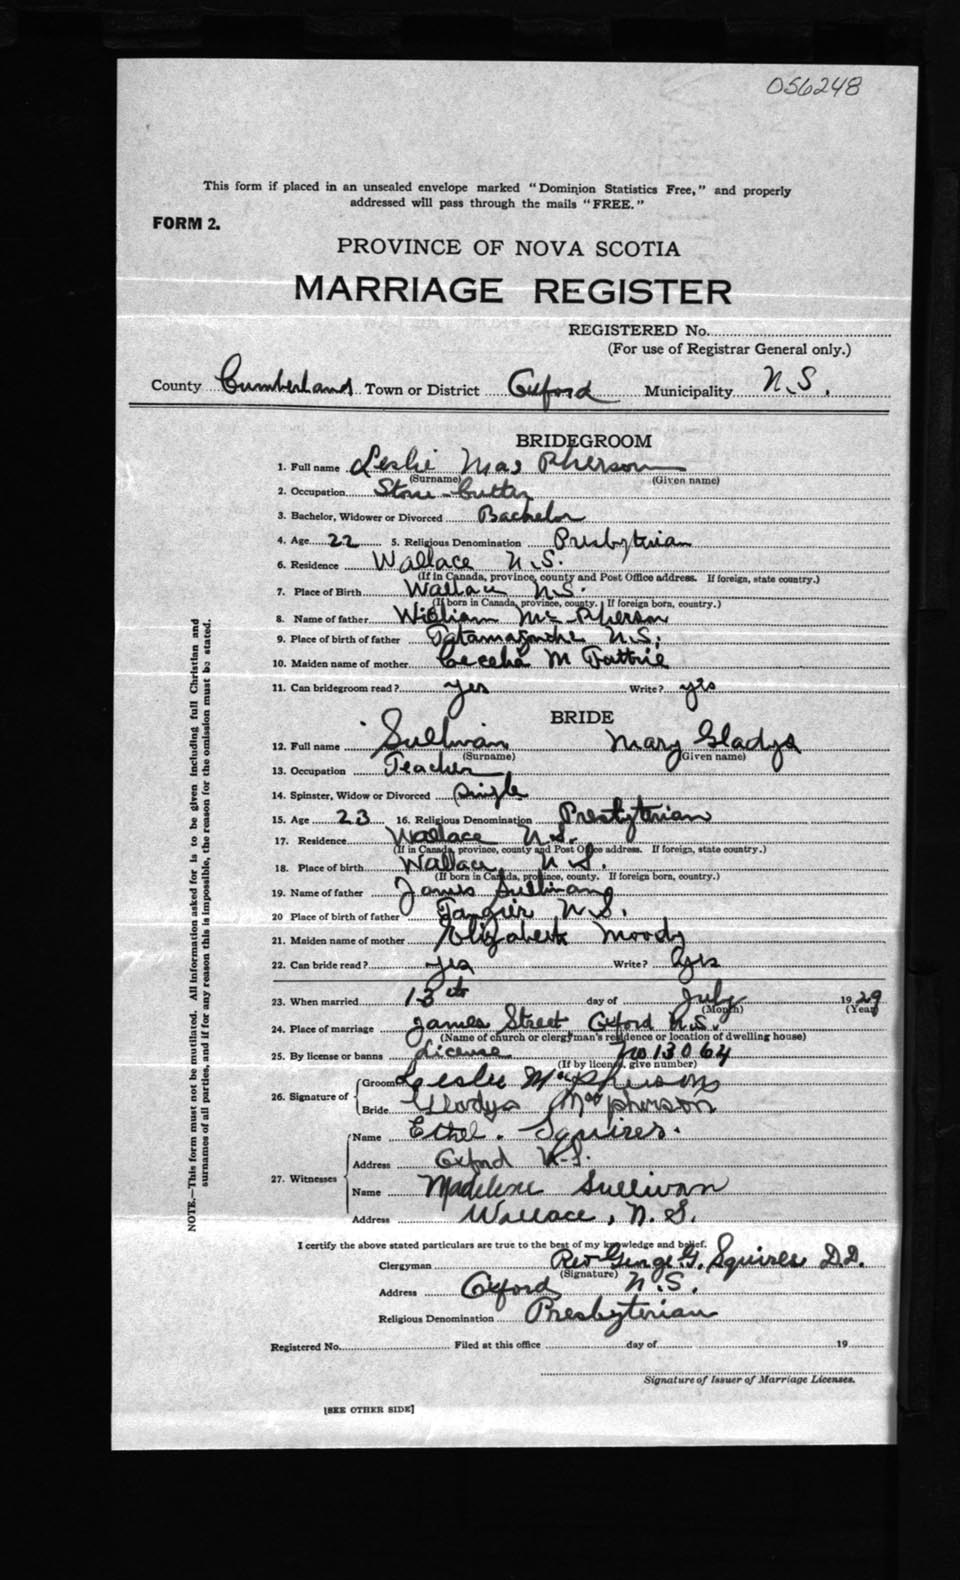 056248
This form if placed in an unsealed envelope marked "Dominion Statistics Free," and properly
addressed will pass through the mails "FREE."
FORM 2.
PROVINCE OF NOVA SCOTIA
MARRIAGE REGISTER
REGISTERED No.
(For use of Registrar General only.)
County Cumberland Town or District Oxford Municipality N.S.
BRIDEGROOM
1. Full name Leslie Mac Pherson
(Surname) (Given name)
2. Occupation Stone-Cutter
3. Bachelor, Widower or Divorced Bachelor
4. Age 22 5. Religious Denomination Presbyterian
6. Residence Wallace N.S.
(If in Canada, province, county and Post Office address. If foreign, state country.)
7. Place of Birth Wallace N.S.
(If born in Canada, province, county. If foreign born, country.)
8. Name of father William Mc Pherson
9. Place of birth of father Tatamagouche N.S.
10. Maiden name of mother Cecelia M
11. Can bridegroom read? yes Write? yes
BRIDE
12. Full name Sullivan Mary Gladys
(Surname) (Given name)
13. Occupation Teacher
14. Spinster, Widow or Divorced Single
15. Age 23 16. Religious Denomination Presbyterian
17. Residence Wallace N.S.
(If in Canada, province, county and Post Office address. If foreign, state country.)
18. Place of birth Wallace N.S.
(If born in Canada, province, county. If foreign born, country.)
19. Name of father James Sullivan
20 Place of birth of father Tangier N.S.
21. Maiden name of mother Elizabeth Moody
22. Can bride read? yes Write? yes
23. When married 13th day of July 1929
(Month) (Year)
24. Place of marriage James Street, Oxford N.S.
(Name of church or clergyman's residence or location of dwelling house)
25. By license or banns License No 13064
(If by license, give number)
26. Signature of Groom Leslie MacPherson
Bride Gladys MacPherson
27. Witnesses Name Ethel. Squires.
Address Oxford N.S.
Name Madelene Sullivan
Address Wallace, N.S.
I certify the above stated particulars are true to the best of my knowledge and belief.
Clergyman Rev George G. Squires D.D.
(Signature)
Address Oxford N.S.
Religious Denomination Presbyterian
Registered No. Filed at this office day of 19
Signature of Issuer of Marriage Licenses.
[SEE OTHER SIDE]
NOTE.—This form must not be mutilated. All information asked for is to be given including full Christian and
surnames of all parties, and if for any reason this is impossible, the reason for the omission must be stated.